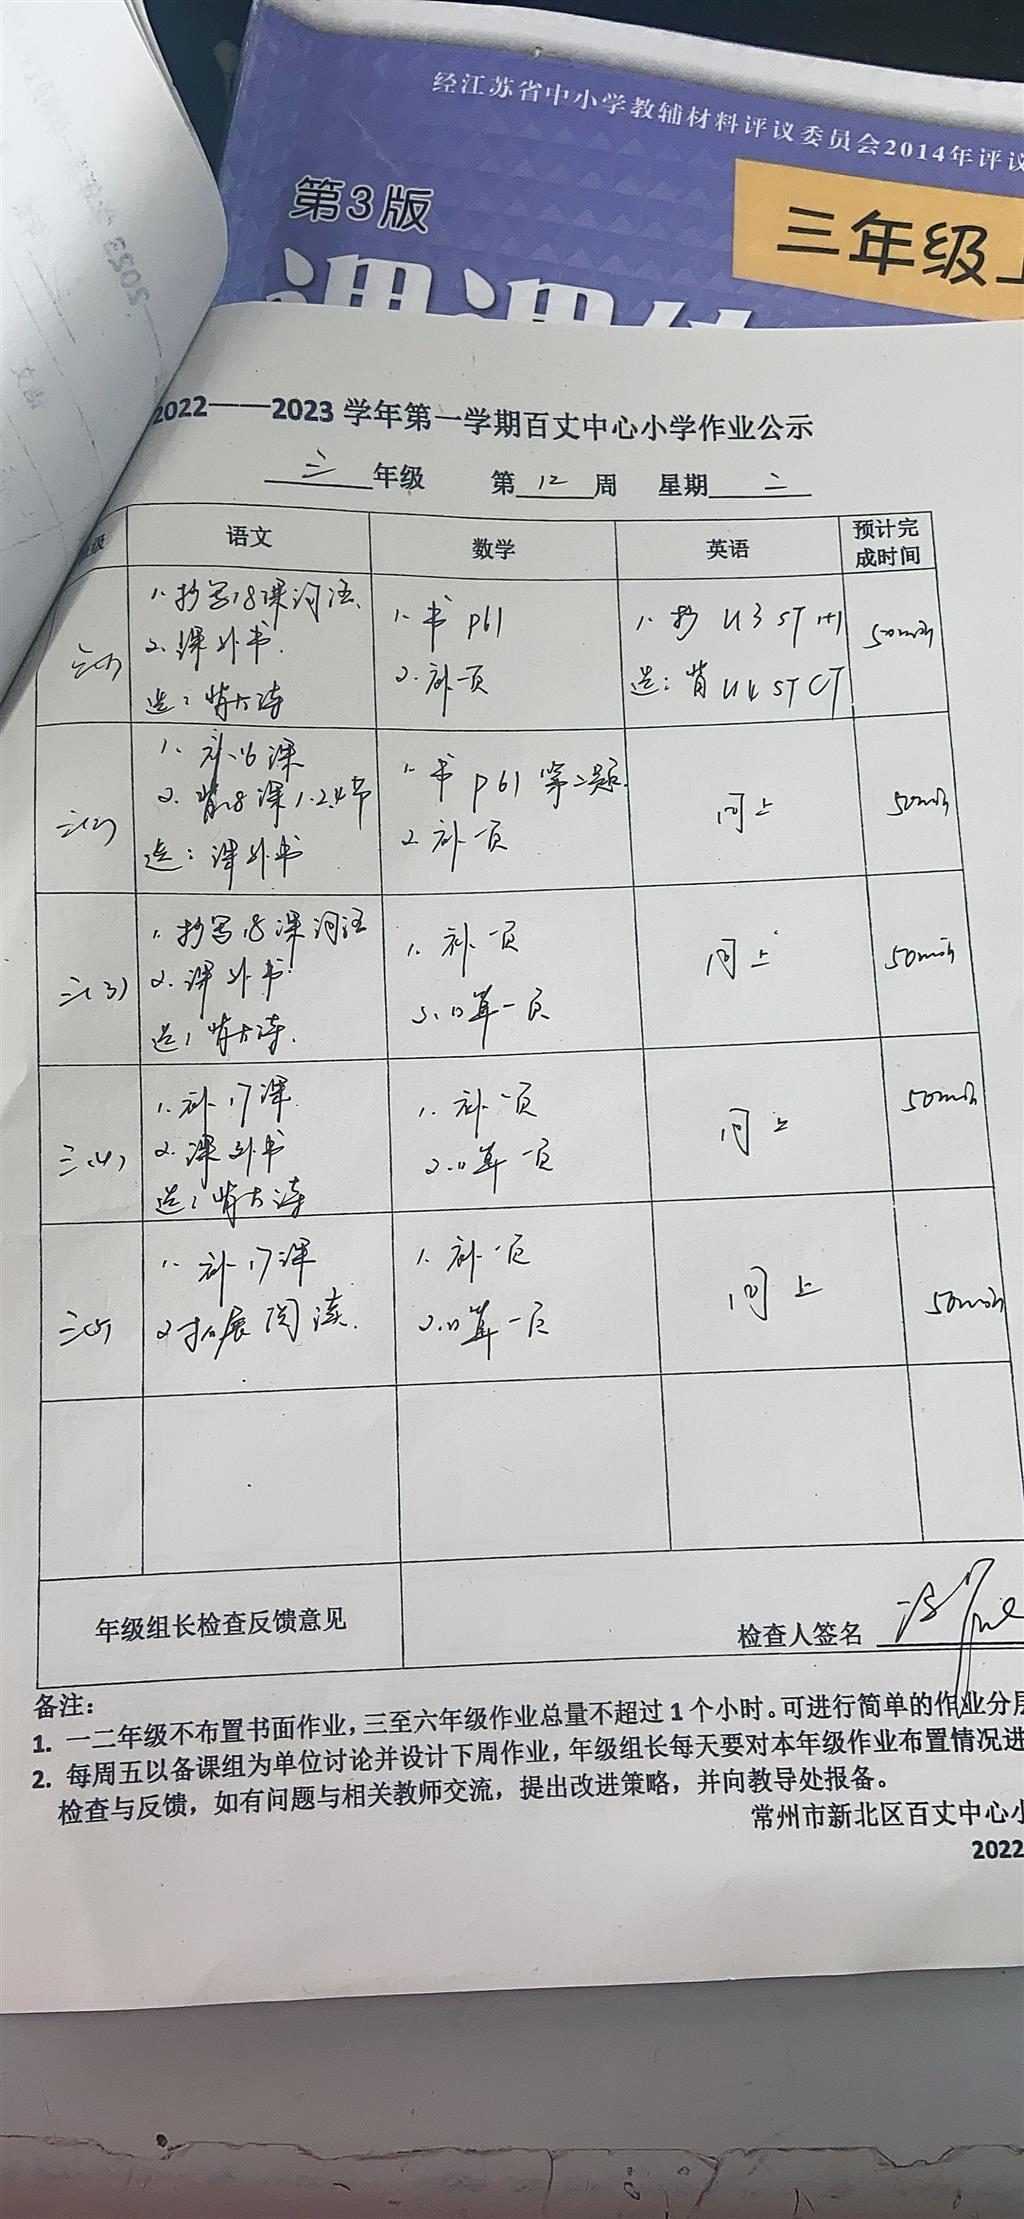 经江苏省中小学教辅材料评议委员会2014年评议
第3版
三年级上
课课练
2022——2023 学年第一学期百丈中心小学作业公示
三 年级 第 12 周 星期 二
级 语文 数学 英语 预计完成时间
三(1)
1.抄写18课词语.
2.课外书.
选:背古诗
1.书 p61
2.补一页
1.抄 U3 ST 1+1
选:背 U4 ST CT
50min
三(2)
1.补16课
2.背18课1.2.4节
选:课外书
1.书 p61 第二题.
2.补一页
同上
50min
三(3)
1.抄写18课词语
2.课外书.
选:背古诗.
1.补一页
2.口算一页
同上
50min
三(4)
1.补17课
2.课外书
选:背古诗
1.补一页
2.口算一页
同上
50min
三(5)
1.补17课
2.拓展阅读.
1.补一页
2.口算一页
同上
50min
年级组长检查反馈意见
检查人签名
备注:
1. 一二年级不布置书面作业，三至六年级作业总量不超过 1 个小时。可进行简单的作业分层
2. 每周五以备课组为单位讨论并设计下周作业，年级组长每天要对本年级作业布置情况进
检查与反馈，如有问题与相关教师交流，提出改进策略，并向教导处报备。
常州市新北区百丈中心小
2022